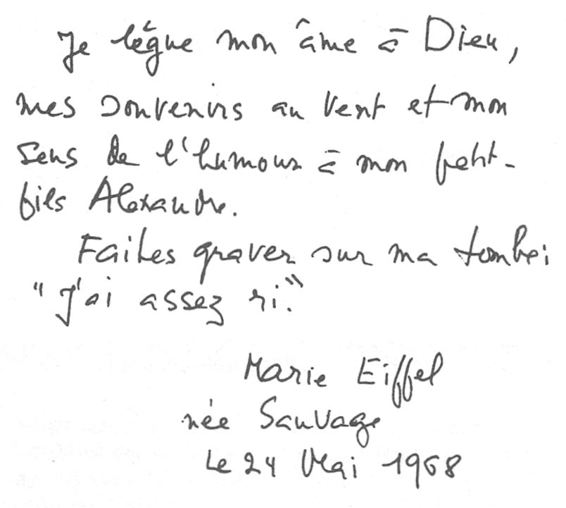 Je lègue mon âme à Dieu,
mes souvenirs au vent et mon
sens de l'humour à mon petit-
fils Alexandre.
Faites graver sur ma tombe :
"J'ai assez ri."
Marie Eiffel
née Sauvage
Le 24 Mai 1968